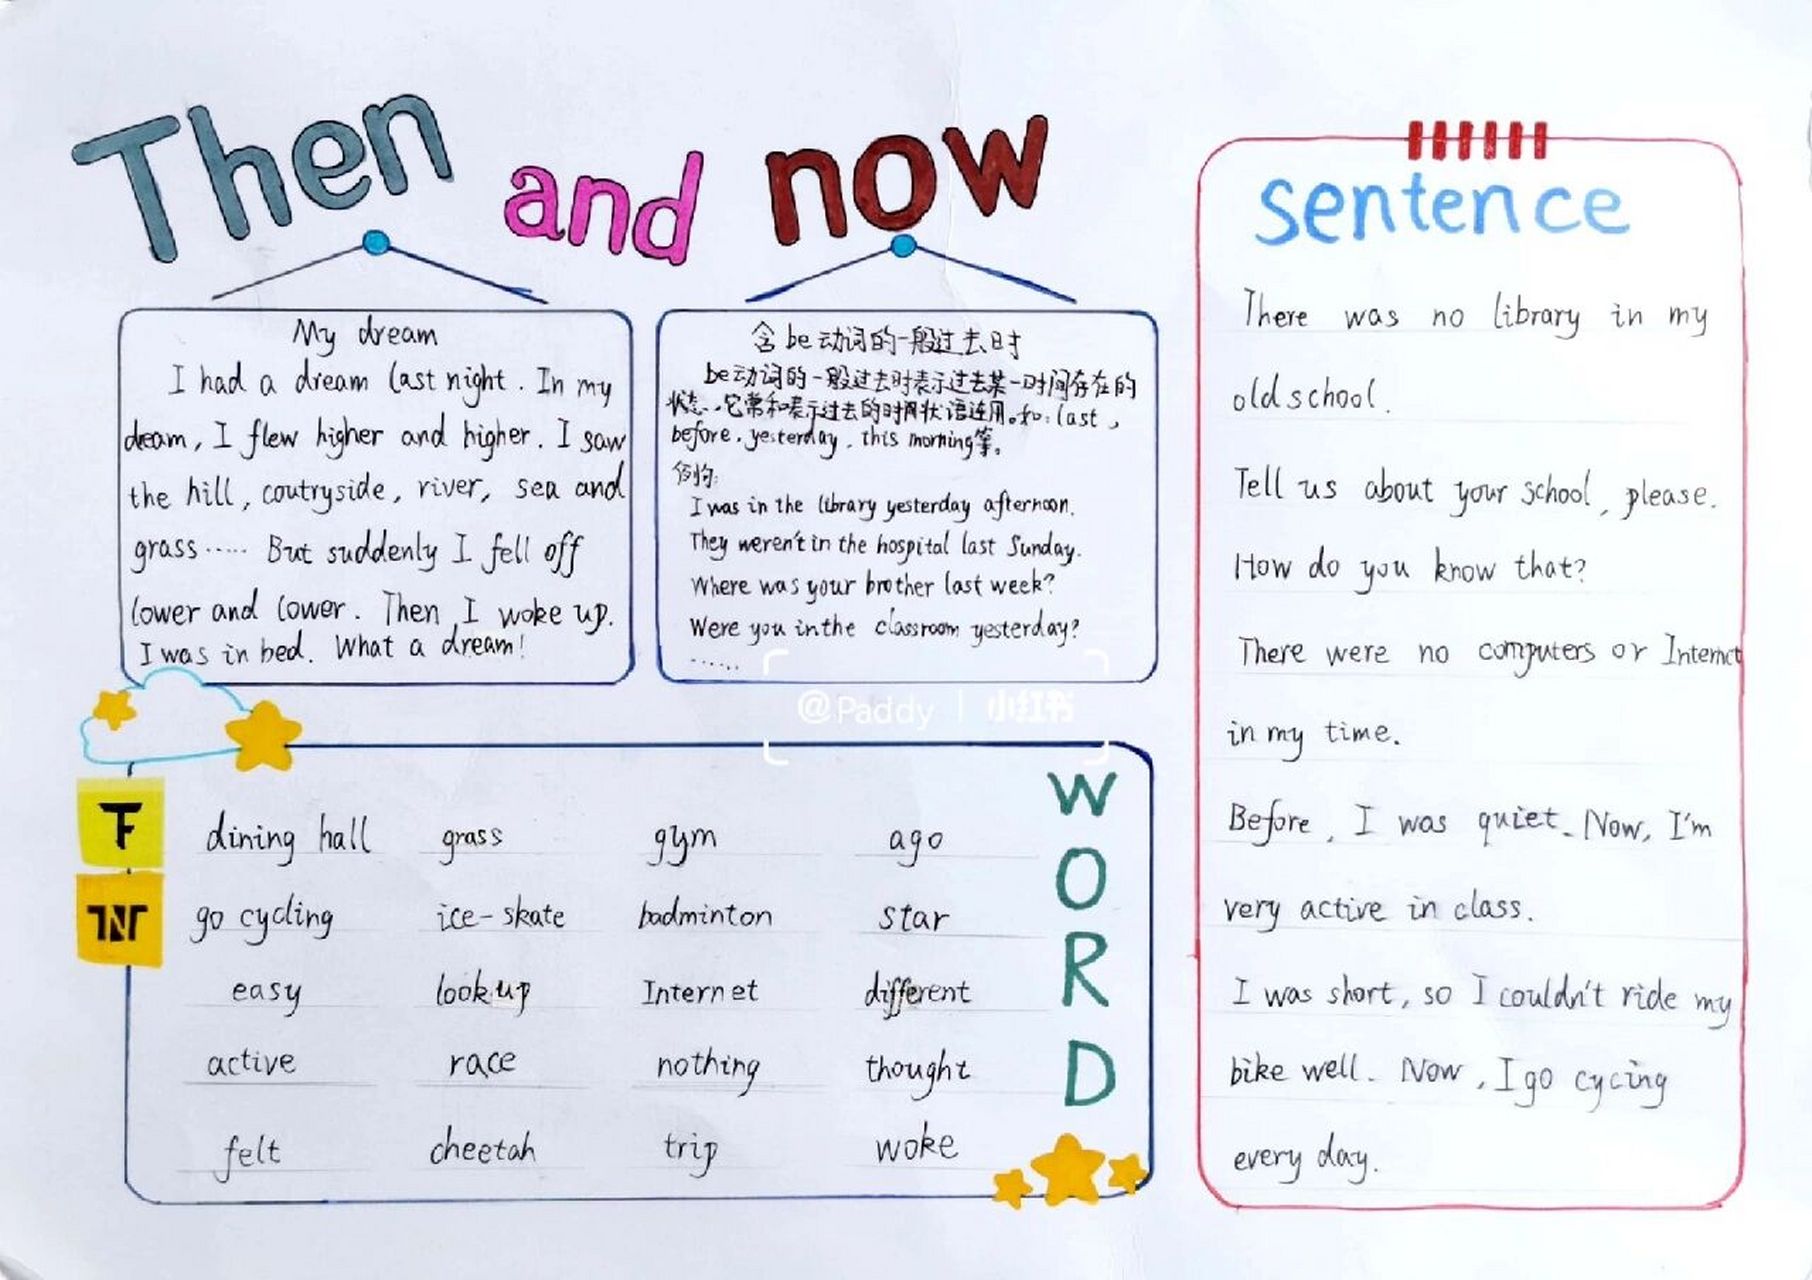 Then and now
My dream
I had a dream last night. In my
dream, I flew higher and higher. I saw
the hill, coutryside, river, sea and
grass...... But suddenly I fell off
lower and lower. Then I woke up.
I was in bed. What a dream!
含be动词的一般过去时
be动词的一般过去时表示过去某一时间存在的
状态.它常和表示过去的时间状语连用。如:last,
before, yesterday, this morning等。
例如:
I was in the library yesterday afternoon.
They weren't in the hospital last Sunday.
Where was your brother last week?
Were you in the classroom yesterday?
......
@Paddy | 小红书
WORD
dining hall grass gym ago
go cycling ice-skate badminton star
easy look up Internet different
active race nothing thought
felt cheetah trip woke
sentence
There was no library in my
old school.
Tell us about your school, please.
How do you know that?
There were no computers or Internet
in my time.
Before, I was quiet. Now, I'm
very active in class.
I was short, so I couldn't ride my
bike well. Now, I go cycing
every day.